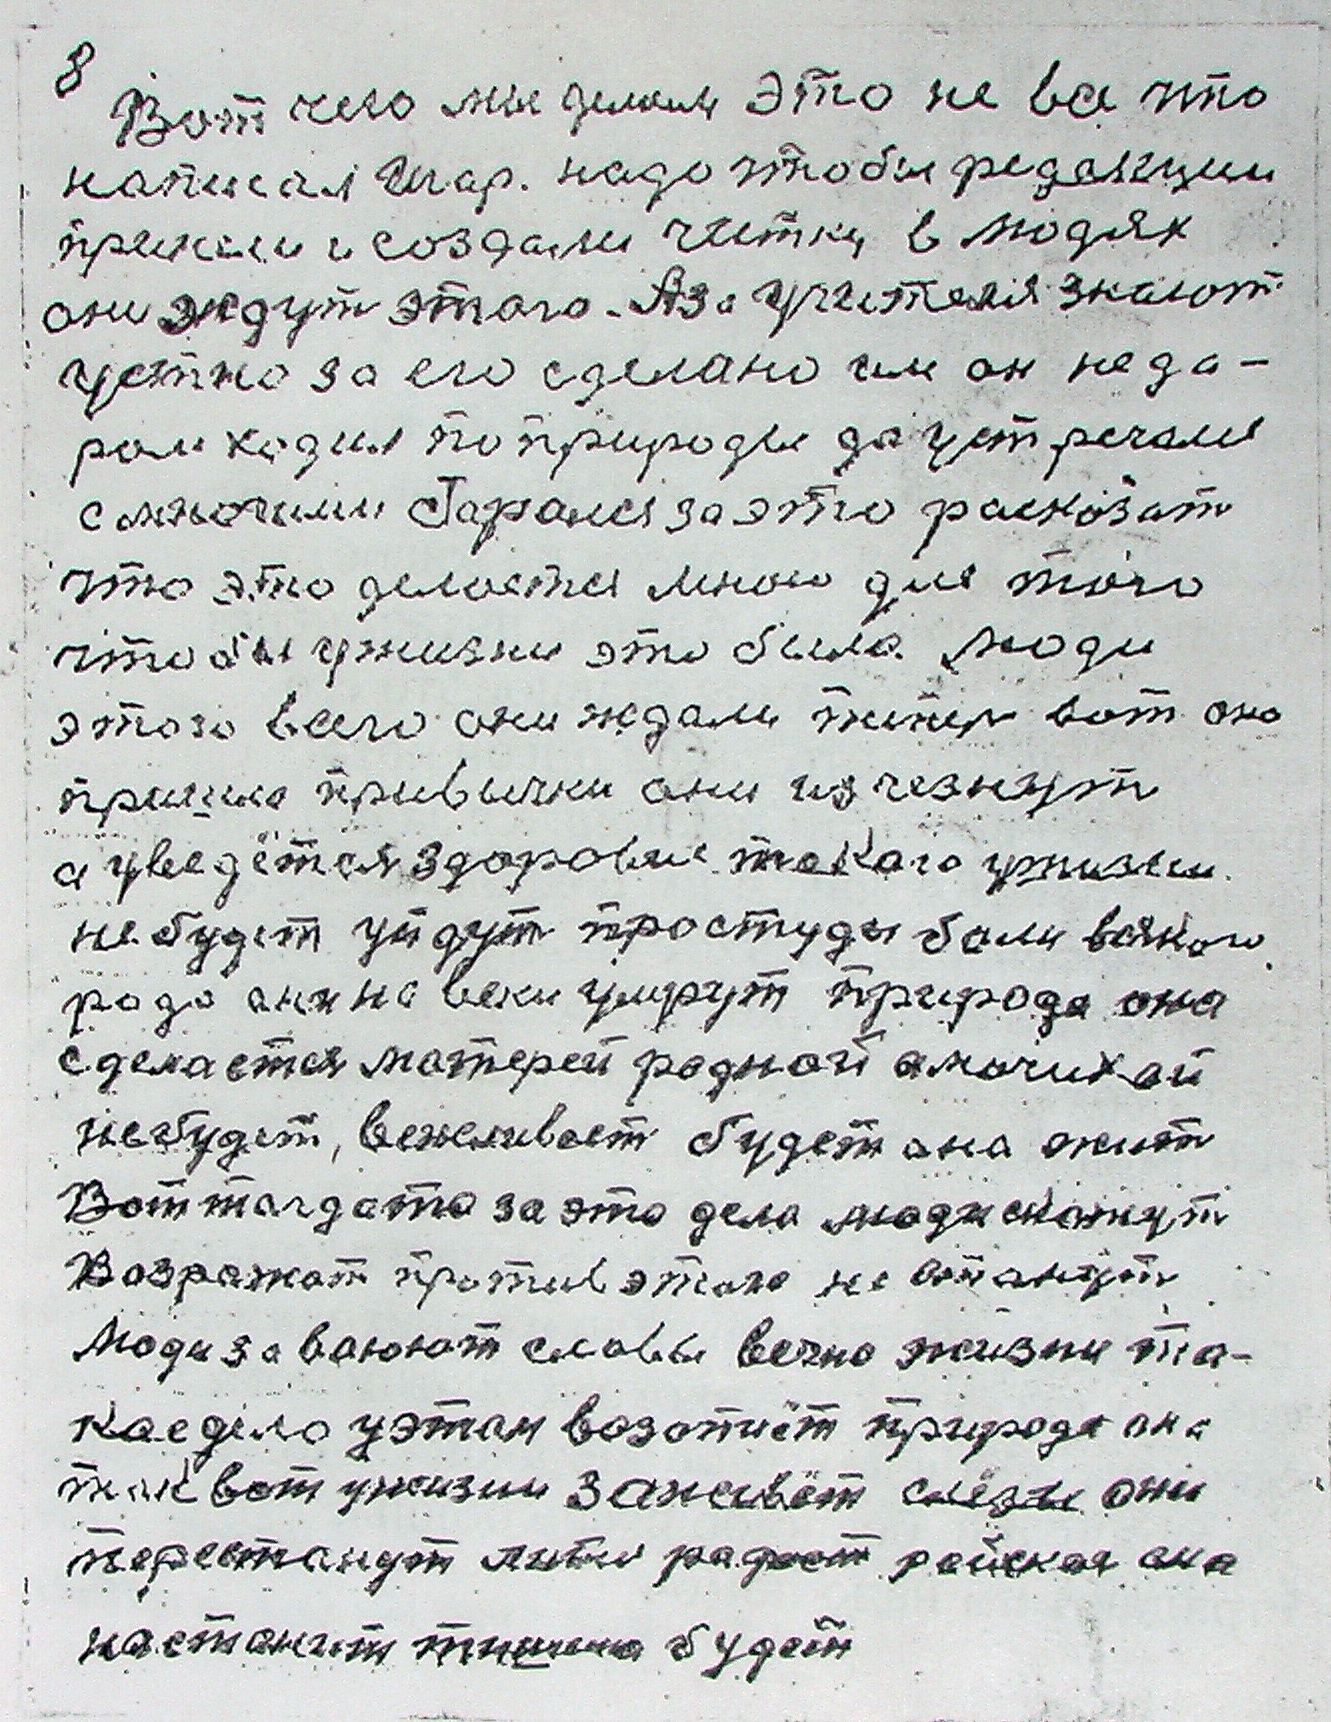 8
Вот чего мы делаем это не все что
написал Игар. надо чтобы редакции
приняли и создали читку в людях
они ждут этого. А за учителя знают
устно за его сделано им он неда-
ром ходил по природы да устречался
с многими старался за это расказат
что это делается мною для того
чтобы ужизни это была люди
этого всего они ждали типер вот оно
пришло привычки они изчезнут
а уведётся здоровие такого ужизни
не будет уйдут простуды боли всякого
рода они на веки умрут природа она
сделается матерей родной а мочихой
небудет, вежливост будет она жит
Вот тагдато за это дела люди скажут
Возражат против этого не станут
Люди завоюют славы вечно жизни та-
кое дело у этом возопиёт природа она
так вот ужизни заживёт слёзы они
перестанут лится радост райская она
настанит тишина будет